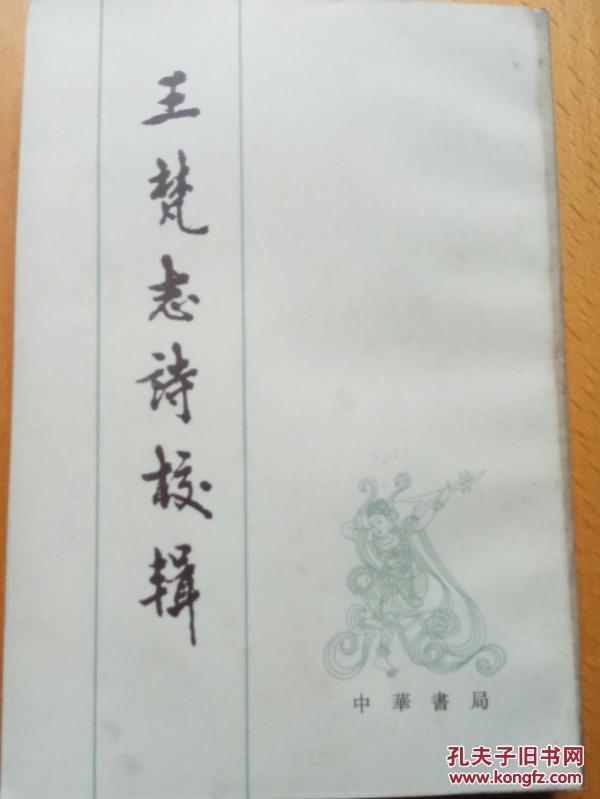 王梵志詩校輯
中華書局
孔夫子旧书网
www.kongfz.com